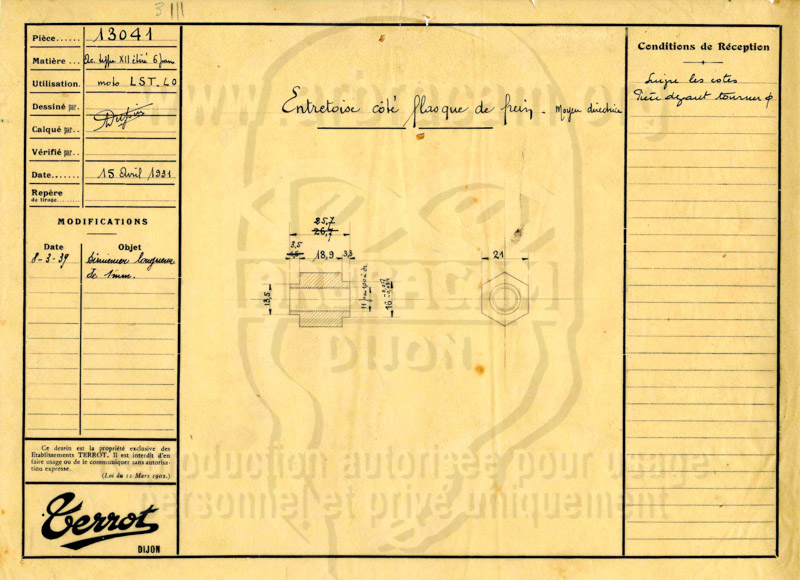 3111
Pièce...... 13041
Matière ... Ac. type XII étiré 6 pans
Utilisation. moto LST. LO
Dessiné par.
Calqué par..
Vérifié par..
Date....... 15 Avril 1931
Repère
de tirage..........
MODIFICATIONS
Date Objet
8-3-39 Diminuer longueur
de 1mm.
Ce dessin est la propriété exclusive des
Etablissements TERROT. Il est interdit d'en
faire usage ou de le communiquer sans autorisa-
tion expresse.
(Loi du 11 Mars 1902.)
Terrot
DIJON
Entretoise côté flasque de frein - Moyeu directrice
25,7
26,7
3,5
4,5 18,9 3,3
18,5
16
21
Conditions de Réception
Suivre les cotes
Pièce devant tourner φ
DIJON
Reproduction autorisée pour usage
personnel et privé uniquement